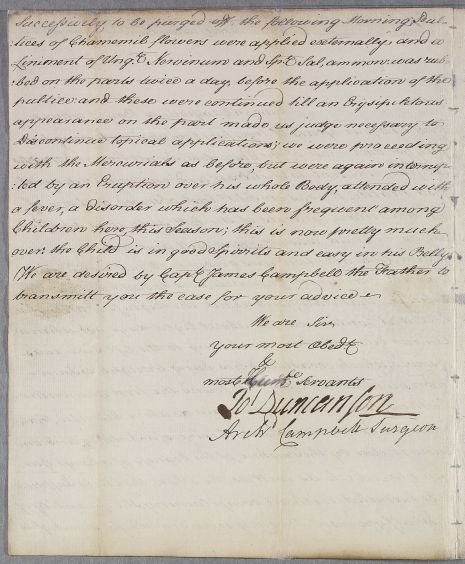 Successively to be purged off the following Morning; Poul-
:tices of Chamemil flowers were applied externally, and a
Liniment of Ung:t Nervinum and Sp:t Sal, ammon: was rub-
:bed on the parts twice a day, before the application of the
pultice and these were continued till an Erysipelous
appearance on the part made us judge necessary to
Discontinue topical applications; we were proceeding
with the Mercurials as before, but were again interrup-
:ted by an Eruption over his whole Body, attended with
a fever, a disorder which has been frequent among
Children here, this Season; this is now pretly much
over. the Child is in good Spirits and easy in his Belly;
We are desired by Cap:t James Campbell the Father to
transmitt you the case for your advice
We are Sir,
your most Obed:t
&
most Hum:e Servants
Jo: Duncanson
Arch:d Campbell Surgeon